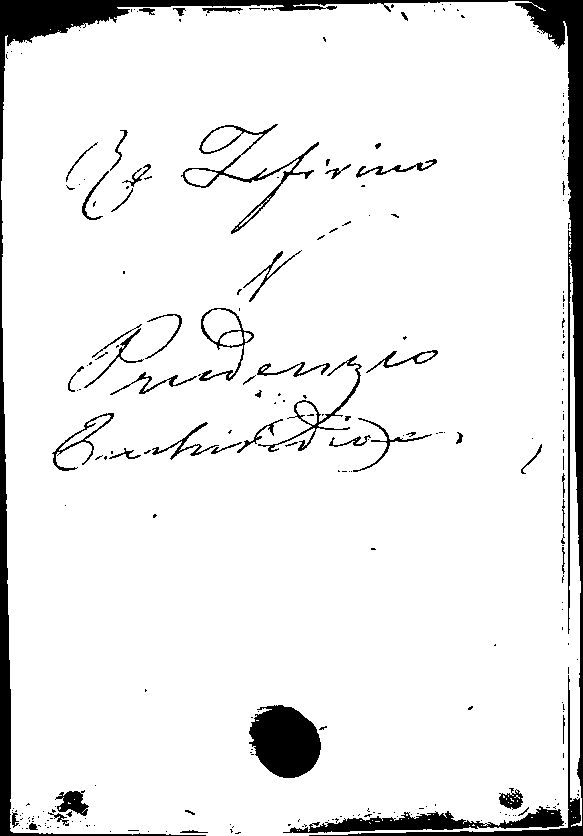 Zefirino
Prudenzio
Enchiridione.